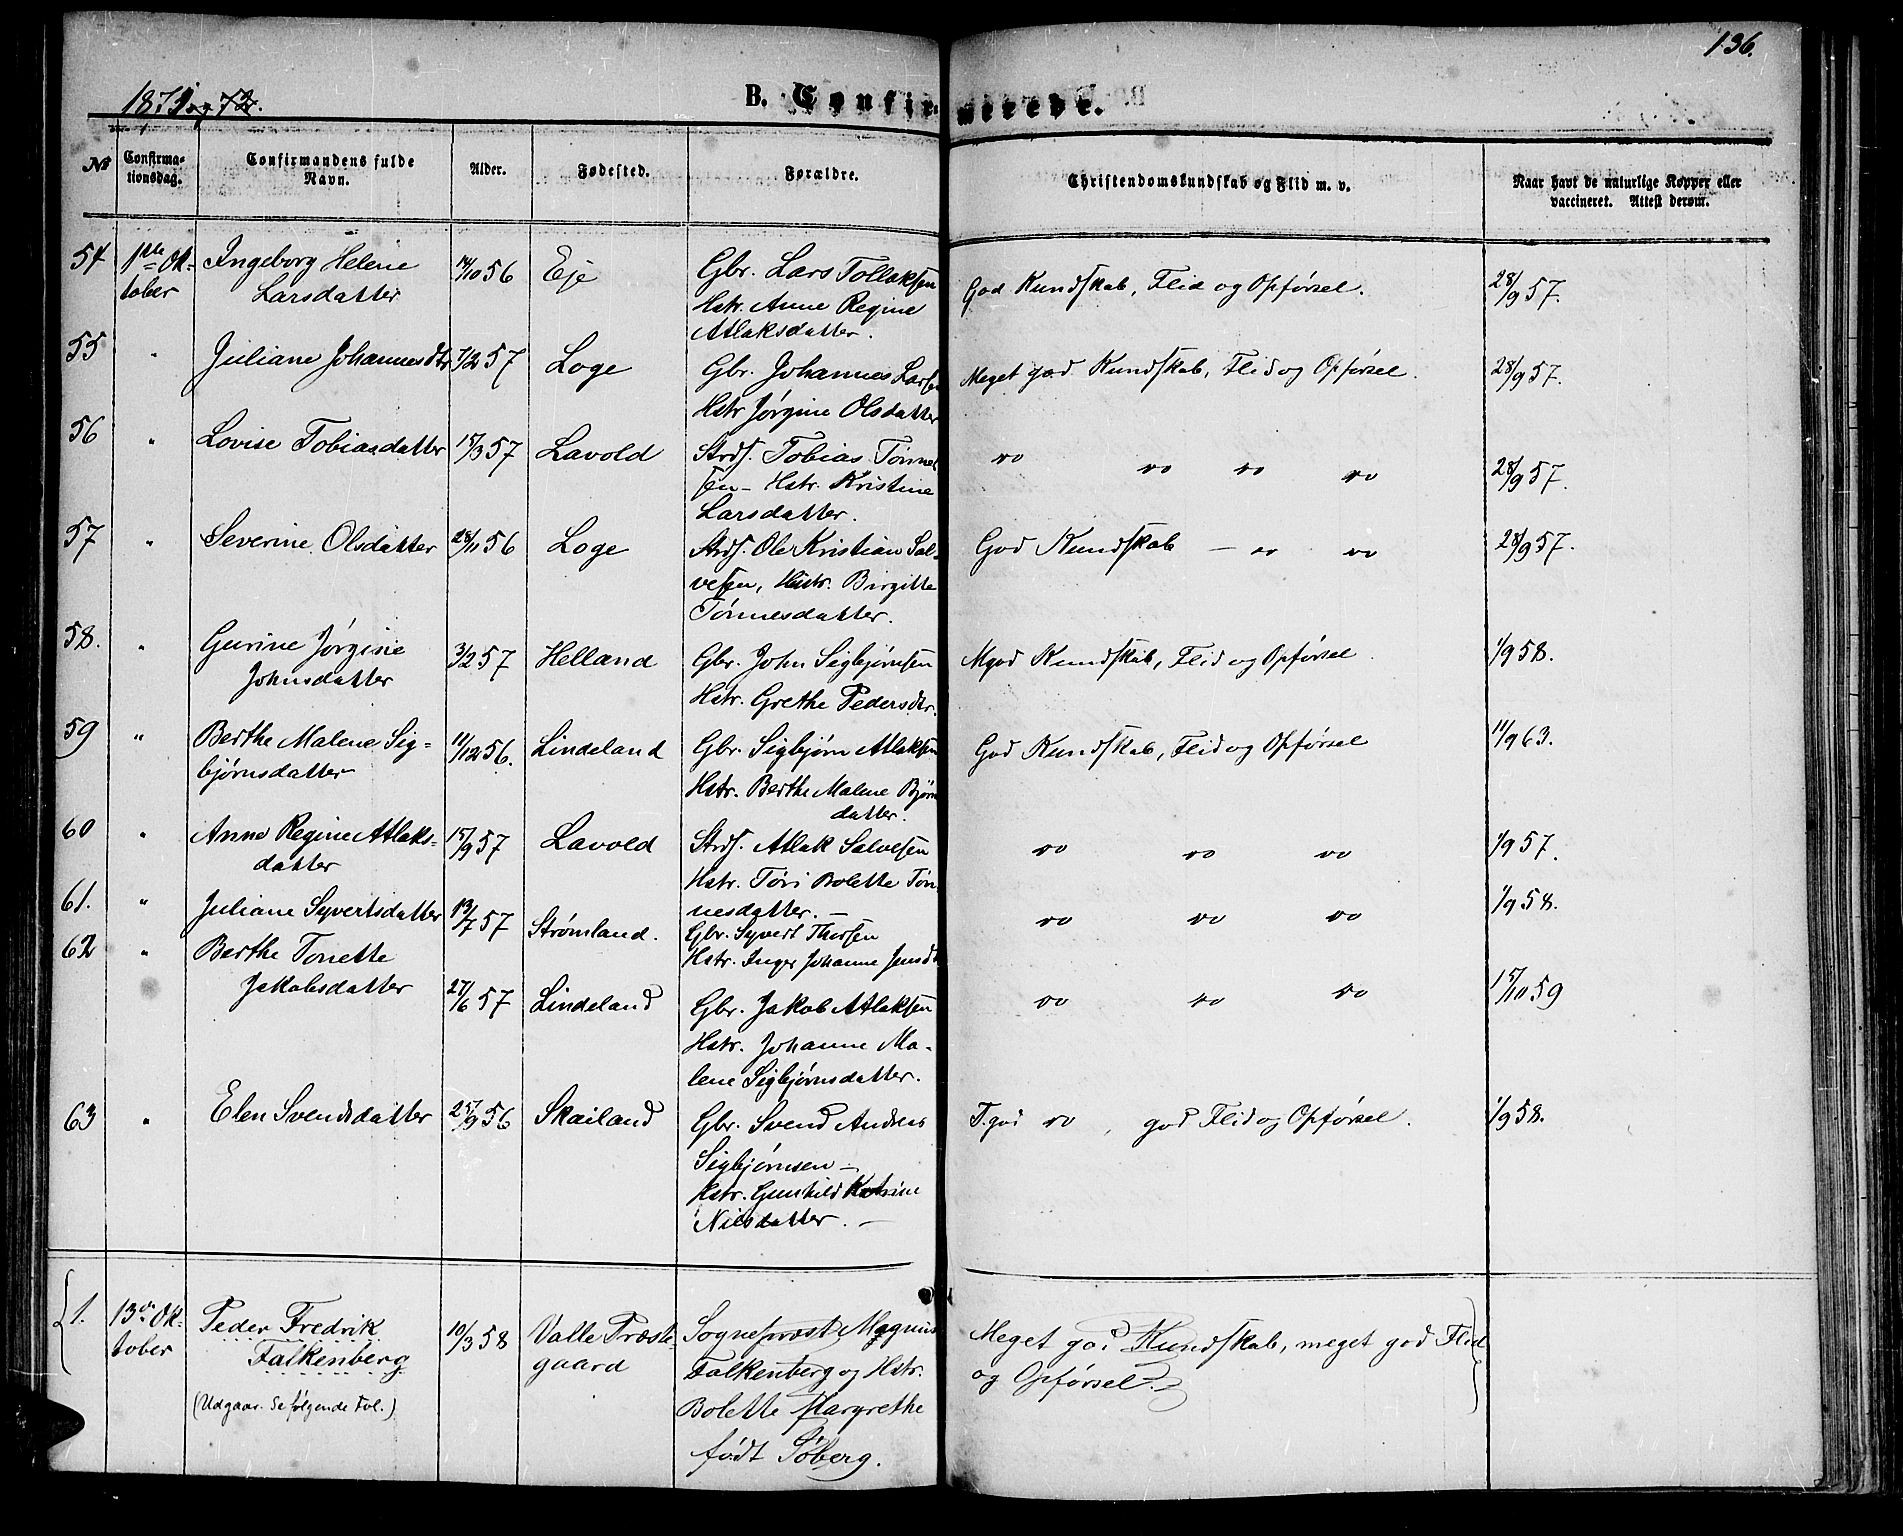 136.
1871 og 72.
B. Confirmerede.
No Confirmationsdag. Confirmandens fulde Navn. Alder. Fødested. Forældre. Christendomskundskab og Flid m. v. Naar havt de naturlige Kopper eller vaccineret. Attest derom.
54 1ste Ok- Ingeborg Helene 14/10 56 Eje Gbr. Lars Tollaksen God Kundskab, Flid og Opførsel. 28/9 57.
tober Larsdatter Hstr. Anne Regine
Atlaksdatter.
55 " Juliane Johannesdtr 7/2 57 Loge Gbr. Johannes Larsen Meget god Kundskab, Flid og Opførsel. 28/9 57.
Hstr Jørgine Olsdatter
56 " Lovise Tobiasdatter 15/3 57 Lavold Strds. Tobias Tønne- vo vo vo vo 28/9 57.
sen - Hstr. Kristine
Larsdatter.
57 " Severine Olsdatter 28/11 56 Loge Strds. Ole Kristian Sal- God Kundskab - vo vo 28/9 57.
vesen, Hstr. Birgitte
Tønnesdatter.
58. " Gurine Jørgine 3/2 57 Helland Gbr. John Sigbjørnsen Mgod Kundskab, Flid og Opførsel 1/9 58.
Johnsdatter Hstr. Grethe Pedersdtr.
59 " Berthe Malene Sig- 11/12 56. Lindeland Gbr. Sigbjørn Atlaksen God Kundskab, Flid og Opførsel 11/9 63.
bjørnsdatter Hstr. Berthe Malene Bjørn
datter.
60 " Anne Regine Atlaks- 15/9 57 Lavold Strds. Atlak Salvesen vo vo vo 1/9 57.
datter Hstr. Tøri Bolette Tøn-
nesdatter. -
61. " Juliane Syvertsdatter 13/7 57 Strømland. Gbr. Syvert Thorsen vo vo vo 1/9 58.
Hstr. Inger Johanne Jensdt
62 " Berthe Tonette
Jakobsdatter 27/6 57 Lindeland Gbr. Jakob Atlaksen vo vo vo 15/10 59
Hstr. Johanne Ma-
lene Sigbjørnsdatter.
63 " Elen Svendsdatter 25/9 56 Skailand Gbr. Svend Andreas T.god vo , god Flid og Opførsel. 1/9 58.
Sigbjørnsen -
Hstr. Gunhild Katrine
Nilsdatter. -
1. 13de Ok- Peder Fredrik 10/3 58 Valle Præste- Sognepræst Magnus Meget god Kundskab, meget god Flid
tober Falkenberg gaard Falkenberg og Hstr. og Opførsel.
(Udgaar. Se følgende Fol.) Bolette Margrethe
født Søberg.